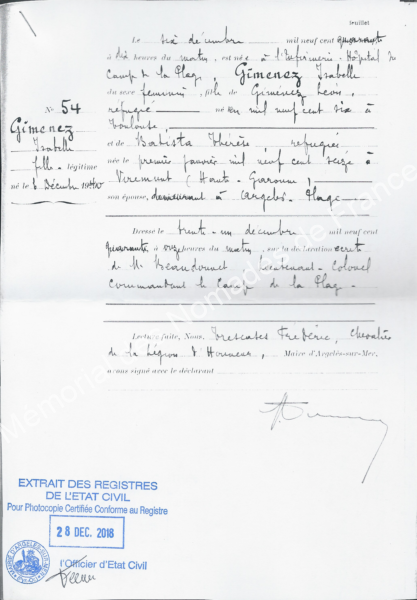 feuillet
Le six décembre mil neuf cent quarante
à dix heures du matin, est née à l'Infirmerie-Hôpital du
Camp de la Plage, Gimenez Isabelle
du sexe féminin, fille de Giminez Léon,
réfugié né en mil neuf cent six à
Toulouse,
et de Batista Thérèse, refugiée
née le premier janvier mil neuf cent seize à
Viremunt (Haute-Garonne)
son épouse, demeurant à Argelès-Plage
N° 54
Gimenez
Isabelle
fille légitime
né le 6 Décembre 1940
Dressé le trente-un décembre mil neuf cent
quarante à onze heures du matin, sur la déclaration écrite
de M. Lieutenant-Colonel
Commandant le Camp de la Plage
Lecture faite, Nous, Trescases Frédéric, Chevalier
de la Légion d'Honneur, Maire d'Argelès-sur-Mer,
avons signé avec le déclarant
Memorial des Nomades de France
EXTRAIT DES REGISTRES
DE L'ETAT CIVIL
Pour Photocopie Certifiée Conforme au Registre
28 DEC. 2018
MAIRIE D'ARGELES-SUR-MER
l'Officier d'Etat Civil